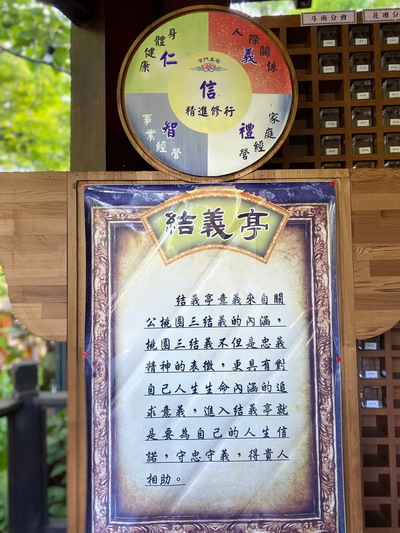 斗南分會
花市分會
身體健康
仁
人際關係
義
玄門真宗
信
精進修行
事業經營
智
家庭經營
禮
結義亭
結義亭意義來自關
公桃園三結義的內涵，
桃園三結義不但是忠義
精神的表徵，更具有對
自己人生生命內涵的追
求意義，進入結義亭就
是要為自己的人生信
諾，守忠守義，得貴人
相助。